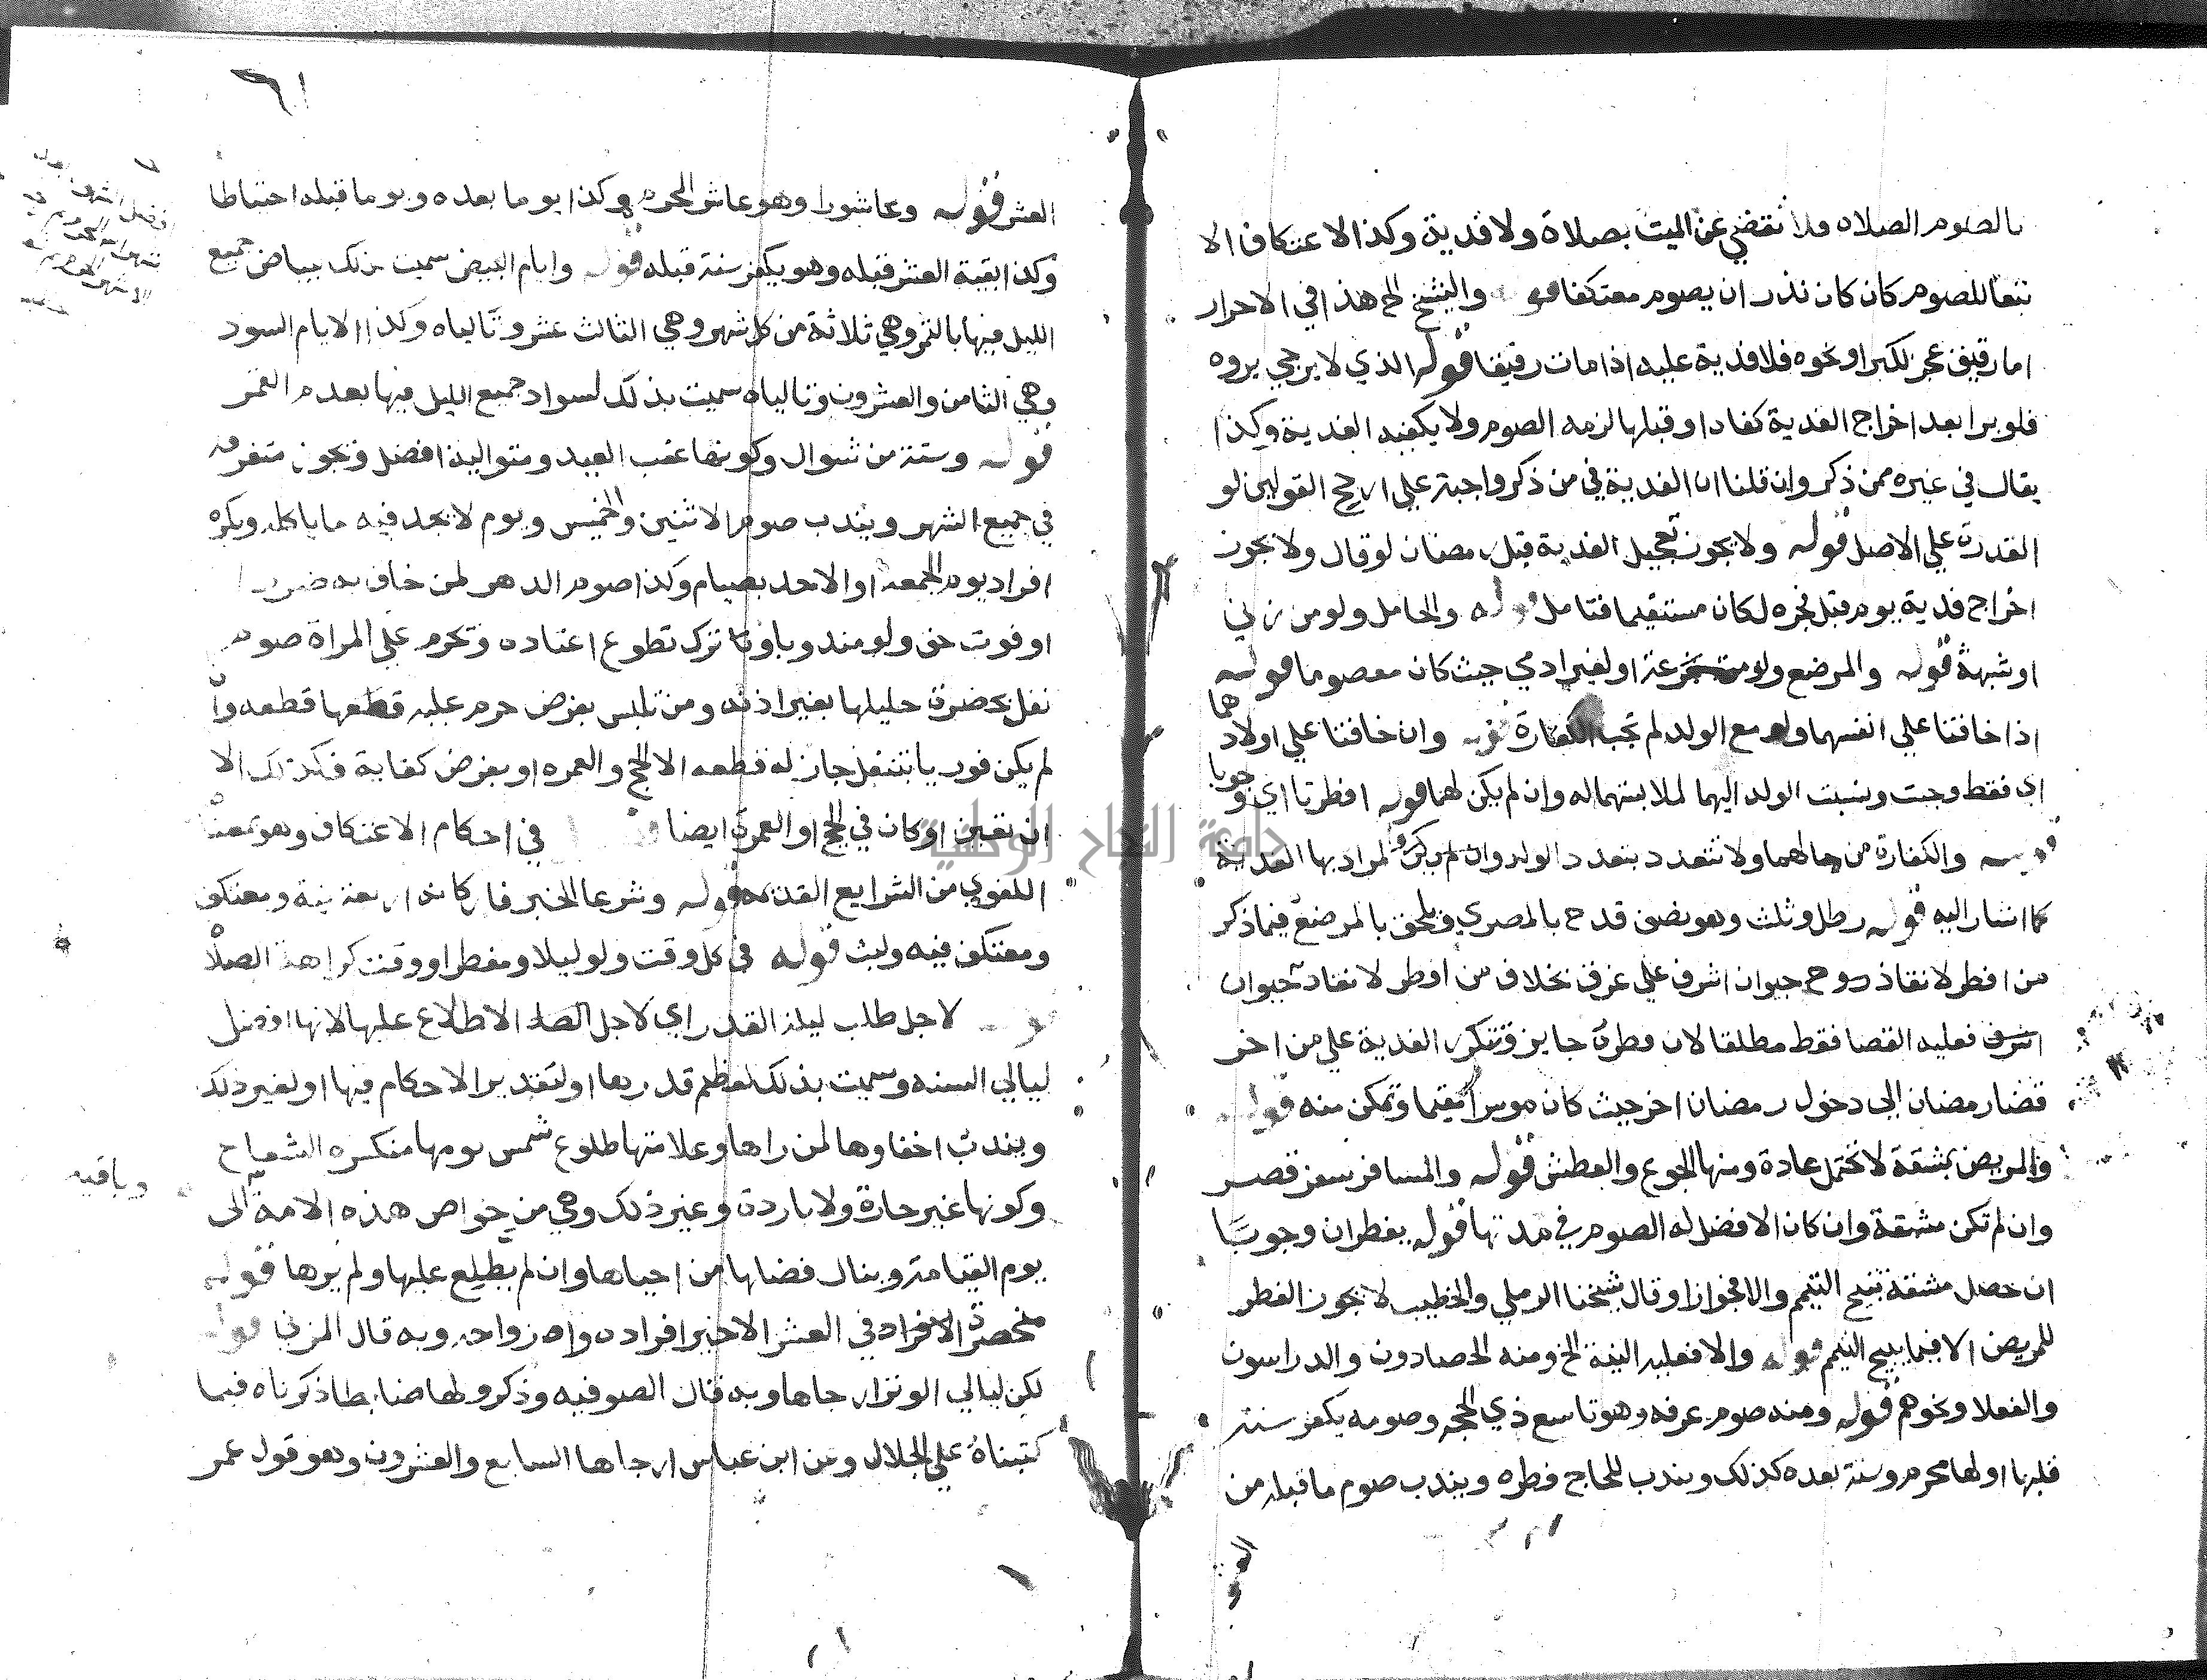 بالصوم الصلاه فلا تقضي عن الميت بصلاة ولا فدية وكذا الاعتكاف الا
تبعا للصوم كان كان نذر ان يصوم معتكفا قوله والشيخ الخ هذا في الاحرار
اما رقيق عجز لكبر او نحوه فلا فدية عليه اذا مات رقيقا قوله الذي لا يرجي بروه
فلو برا بعد اخراج الفدية كفاه او قبلها لزمه الصوم ولا يكفيه الفدية وكذا
يقال في غيره ممن ذكر وان قلنا ان الفدية في من ذكر واجبة علي ارجح القولين لو
القدرة علي الاصل قوله ولا يجوز تعجيل الفدية قبل رمضان لو قال ولا يجوز
اخراج فدية يوم قبل فجره لكان مستقيما فتامل قوله والحامل ولو من زني
او شبهة قوله والمرضع ولو متبرعة او لغير ادمي حيث كان معصوما قوله
اذا خافتا علي انفسهما ولو مع الولد لم تجب الكفارة قوله وان خافتا علي اولادهما
اي فقط وجبت ونسبت الولد اليهما لملابستهما له وان لم يكن لهما قوله افطرتا اي وجوبا
قوله والكفارة من مالهما ولا تتعدد بتعدد الولد وان لم يكن والمراد بها الفدية
كما اشار اليه قوله رطل وثلث وهو نصف قدح بالمصري ويلحق بالمرضع فيما ذكر
من افطر لانقاذ روح حيوان اشرف علي غرق بخلاف من افطر لانقاذ حيوان
اشرف فعليه القضا فقط مطلقا لان فطره جايز وتتكرر الفدية علي من اخر
قضا رمضان الي دخول رمضان اخر حيث كان موسرا مقيما وتمكن منه قوله
والمريض بمشقة لا تحتمل عادة ومنها الجوع والعطش قوله والمسافر سفر قصر
وان لم تكن مشقة وان كان الافضل له الصوم في مدتها قوله يفطران وجوبا
ان حصل مشقة تبيح التيمم والا فجوازا وقال شيخنا الرملي والخطيب لا يجوز الفطر
للمريض الا فيما يبيح التيمم قوله والا فعليه النية الخ ومنه الحصادون والدراسون
والفعلا ونحوهم قوله ومنه صوم عرفه وهو تاسع ذي الحجه وصومه يكفر سنة
قبلها اولها محرم وسنة بعده كذلك ويندب للحاج فطره ويندب صوم ما قبله من
العشر
٦١
العشر قوله وعاشورا وهو عاشر المحرم وكذا يوما بعده ويوما قبله احتياطا
وكذا بقية العشر قبله وهو يكفر سنة قبله قوله وايام البيض سميت بذلك بياض جميع
الليل فيها بالقمر وهي ثلاثة من كل شهر وهي الثالث عشر وتالياه وكذا الايام السود
وهي الثامن والعشرون وتالياه سميت بذلك لسواد جميع الليل فيها بعدم القمر
قوله وستة من شوال وكونها عقب العيد ومتوالية افضل وتجوز متفرقه
في جميع الشهر ويندب صوم الاثنين والخميس ويوم لا يجد فيه ما ياكله ويكره
افراد يوم الجمعة او الاحد بصيام وكذا صوم الدهر لمن خاف به ضررا
او فوت حق ولو مندوبا وكذا ترك تطوع اعتاده ويحرم علي المراة صوم
نفل بحضرة حليلها بغير اذنه ومن تلبس بفرض حرم عليه قطعه وان
لم يكن فوريا بتنفل جاز له قطعه الا الحج والعمره او بفرض كفاية فكذلك الا
ان تعين او كان في الحج او العمرة ايضا في احكام الاعتكاف وهو بمعناه
اللغوي من الشرايع القديمه قوله وشرعا الخ فاركانه اربعة نية ومعتكف
ومعتكف فيه ولبث قوله في كل وقت ولو ليلا ومفطرا ووقت كراهة الصلاة
قوله لاجل طلب ليلة القدر اي لاجل الاطلاع عليها لانها افضل
ليالي السنه وسميت بذلك لعظم قدرها او لتقدير الاحكام فيها او لغير ذلك
ويندب اخفاوها لمن راها وعلامتها طلوع شمس يومها منكسره الشعاع
وكونها غير حارة ولا باردة وغير ذلك وهي من خواص هذه الامة وباقيه الي
يوم القيامة وينال فضلها من احياها وان لم يطلع عليها ولم يرها قوله
منحصرة في العشر الاخير افراده وازواجه وبه قال المزني قوله
لكن ليالي الوتر ارجاها وبه قال الصوفيه وذكروا لها ضابطا ذكرناه فيما
كتبناه علي الجلال وعن ابن عباس ارجاها السابع والعشرون وهو قول عمر
جامعة النجاح الوطنية